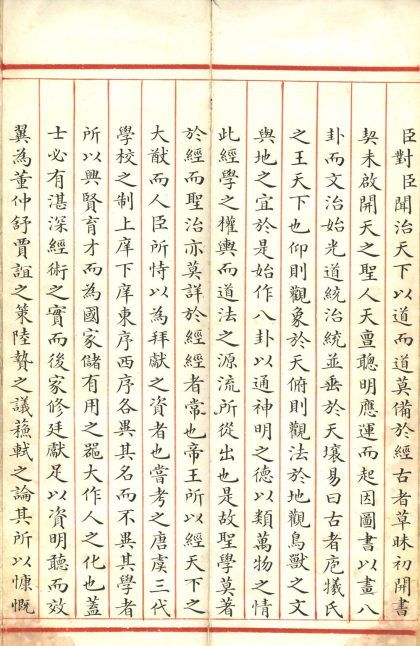 臣對臣聞治天下以道而道莫備於經古者草昧初開書
契未啟開天之聖人天亶聰明應運而起因圖書以畫八
卦而文治始光道統治統並垂於天壤易曰古者庖犧氏
之王天下也仰則觀象於天俯則觀法於地觀鳥獸之文
與地之宜於是始作八卦以通神明之德以類萬物之情
此經學之權輿而道法之源流所從出也是故聖學莫著
於經而聖治亦莫詳於經經者常也帝王所以經天下之
大猷而人臣所恃以為拜獻之資者也嘗考之唐虞三代
學校之制上庠下庠東序西序各異其名而不異其學者
所以興賢育才而為國家儲有用之器大作人之化也蓋
士必有湛深經術之實而後家修廷獻足以資明聽而效
翼為董仲舒賈誼之策陸贄之議蘓軾之論其所以慷慨